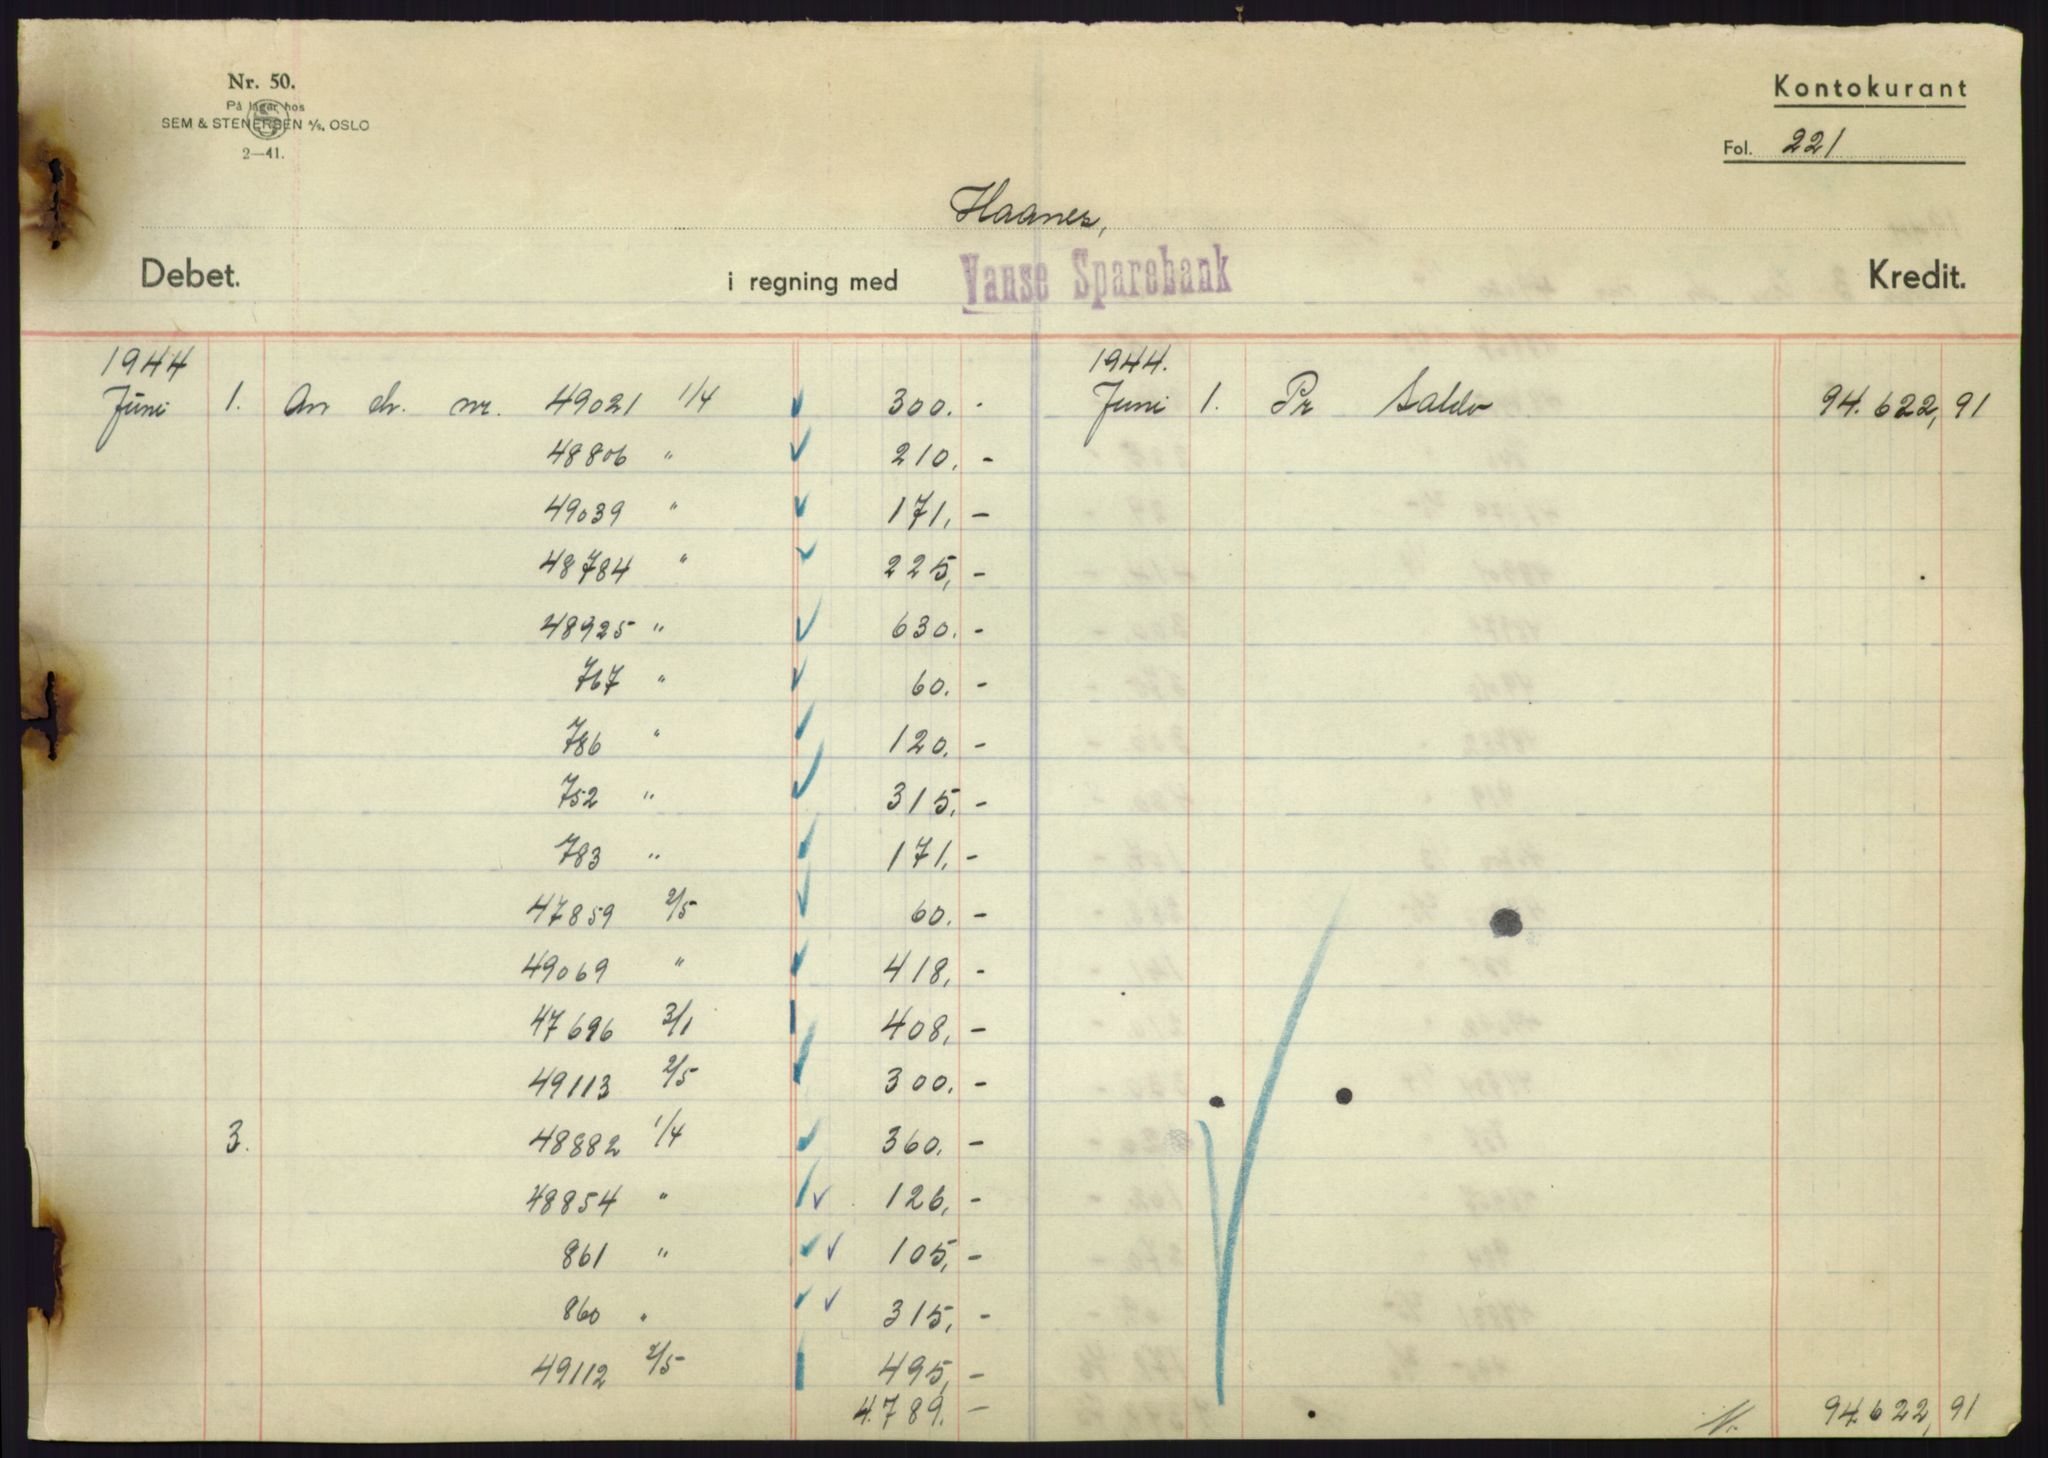 Nr. 50.
På lager hos
SEM & STENERSEN A/S, OSLO
2—41.
Kontokurant
Fol. 221
Haanes,
Debet. i regning med Vanse Sparebank Kredit.
1944 1944.
Juni 1. An ch. nr. 49021 1/4 300. - Juni 1. Pr Saldo 94.622,91
48806 " 210. -
49039 " 171, -
48784 " 225, -
48925 " 630. -
767 " 60. -
786 " 120. -
752 " 315, -
783 " 171. -
47859 2/5 60. -
49069 " 418, -
47696 3/1 408, -
49113 2/5 300. -
3. 48882 1/4 360. -
48854 " 126, -
861 " 105, -
860 " 315, -
49112 2/5 495, -
4.789. - 94.622,91